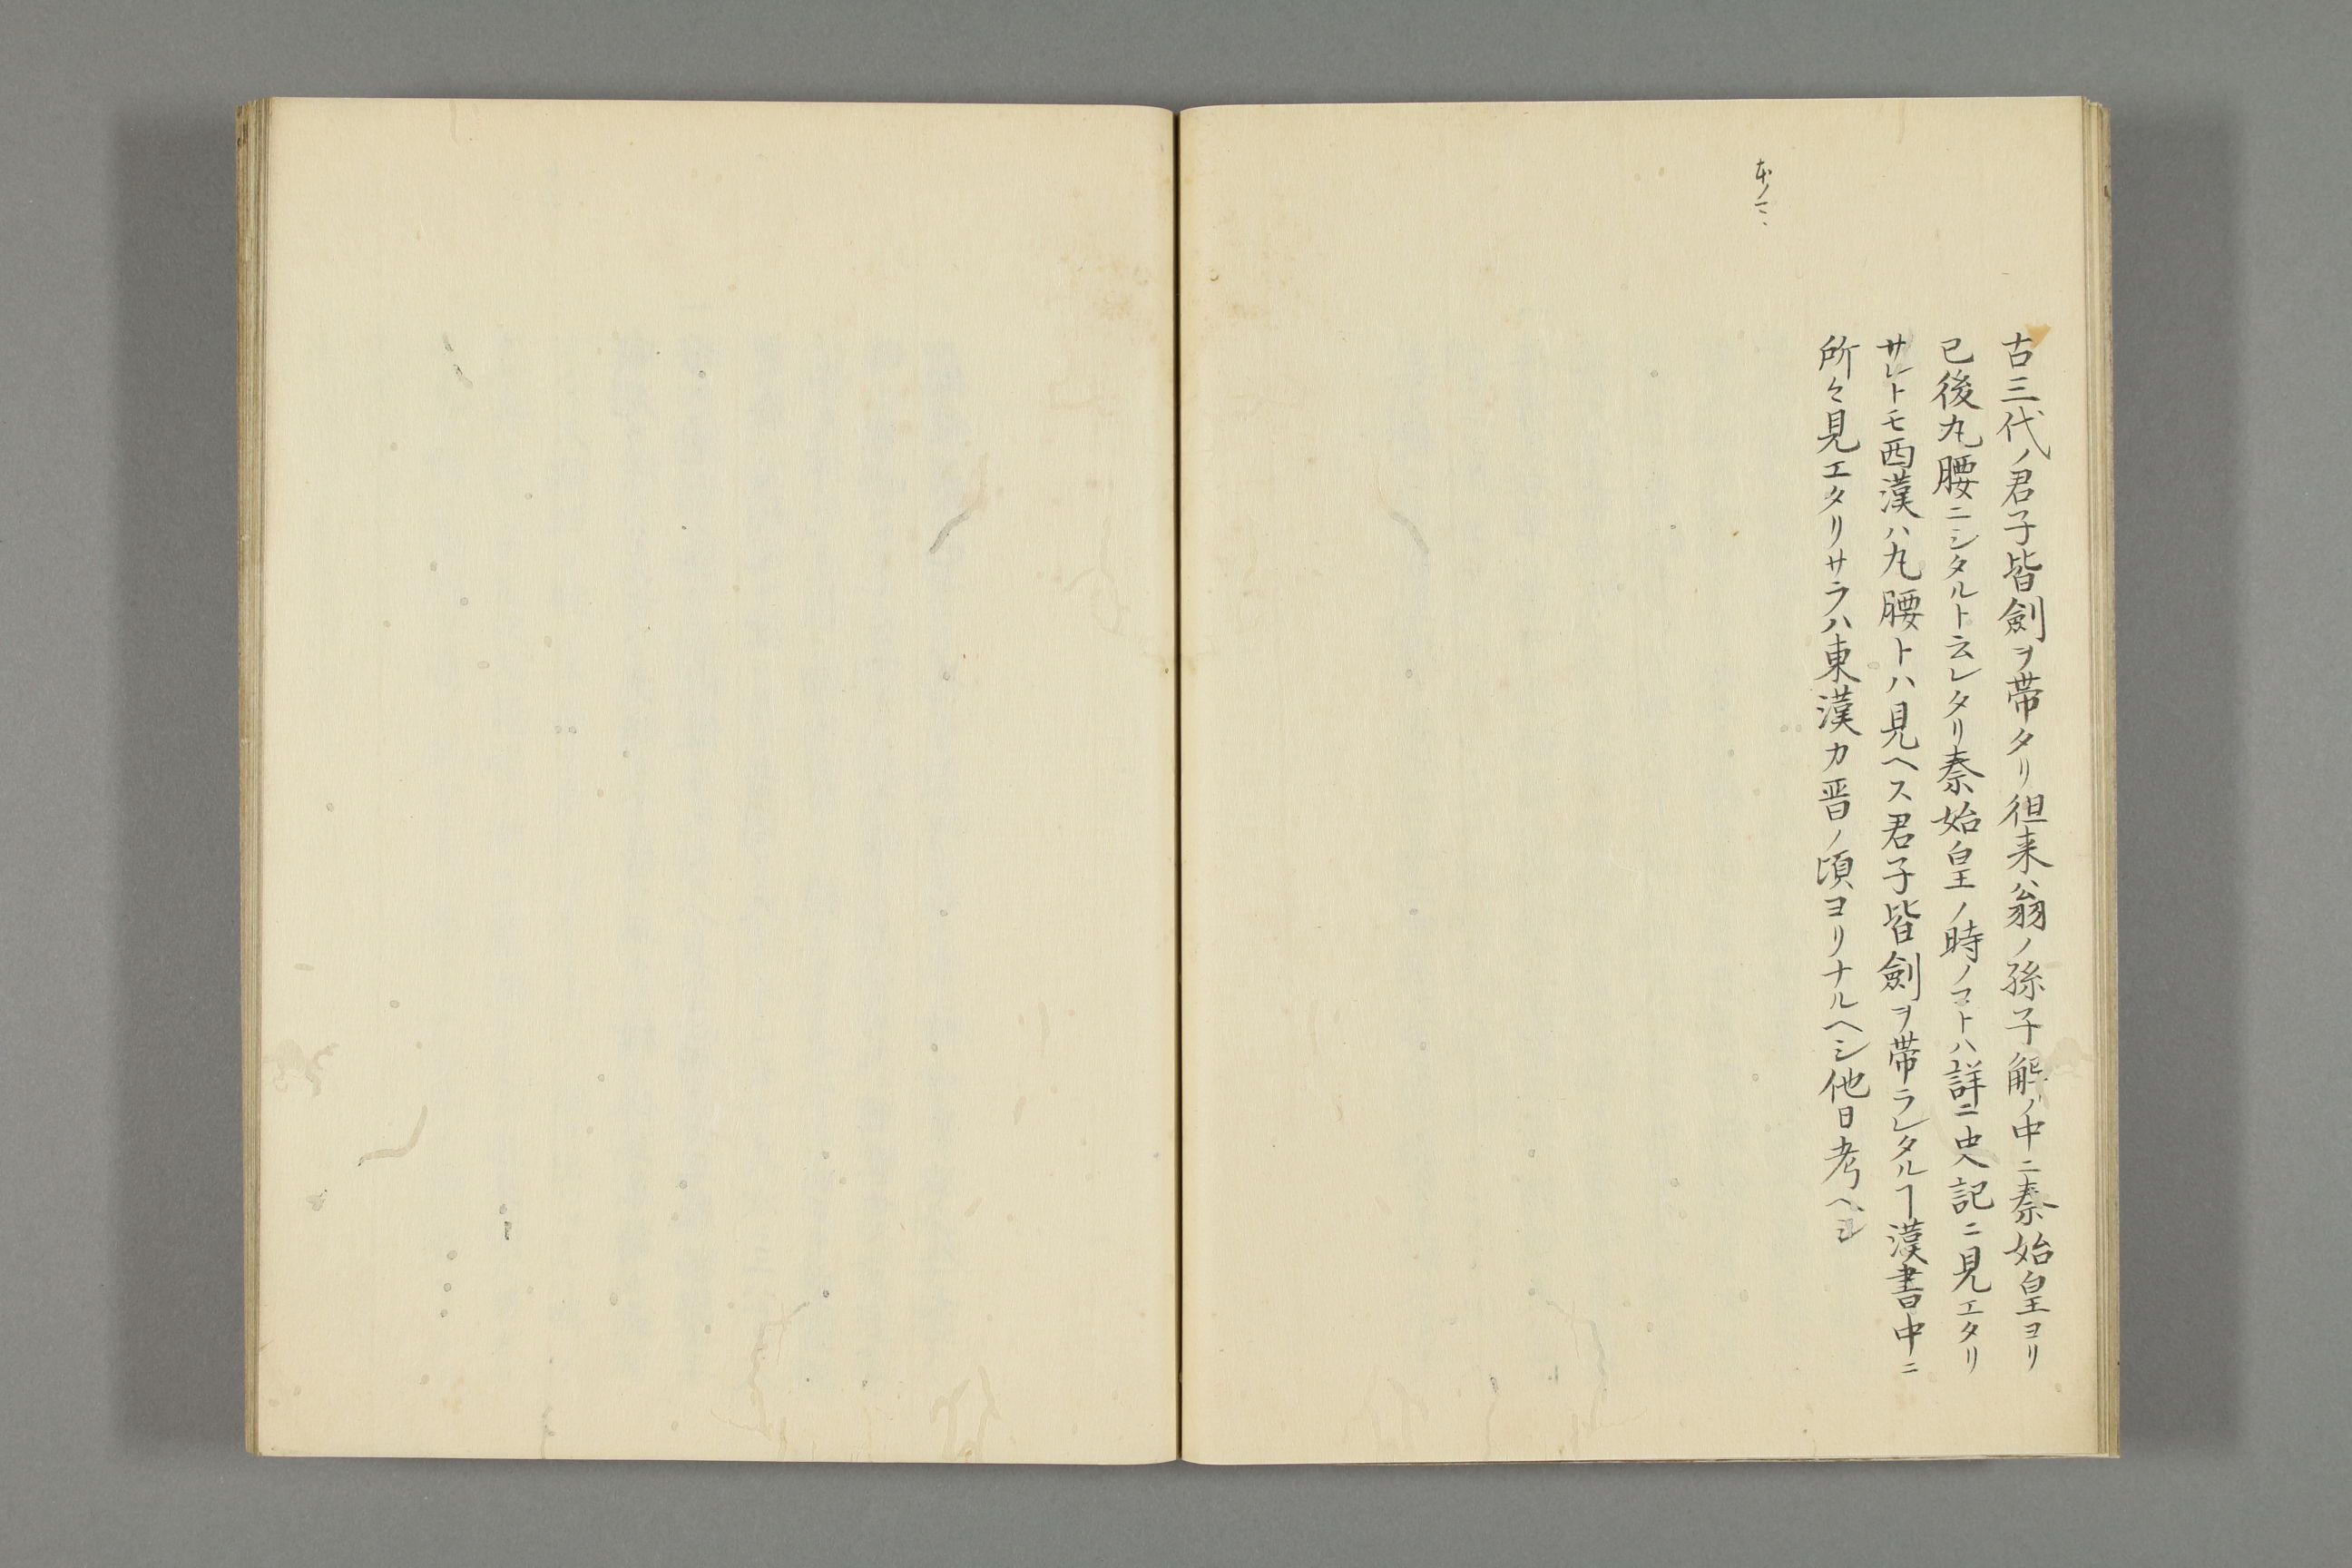 古三代ノ君子皆劍ヲ帯タリ徂来翁ノ孫子解ノ中ニ秦始皇ヨリ
已後丸腰ニシタルト云レタリ秦始皇ノ時ノコトハ詳ニ史記ニ見エタリ
サレトモ西漢ハ丸腰トハ見ヘス君子皆劍ヲ帯ラレタルヿ漢書中ニ
所々見エタリサラハ東漢カ晋ノ頃ヨリナルヘシ他日考ヘシ
本ノマヽ